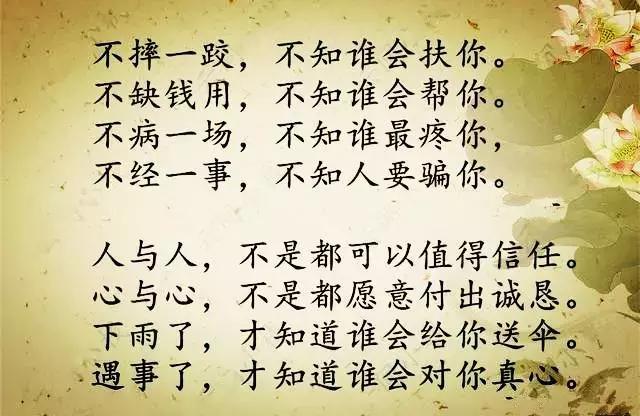 不摔一跤，不知谁会扶你。
不缺钱用，不知谁会帮你。
不病一场，不知谁最疼你，
不经一事，不知人要骗你。
人与人，不是都可以值得信任。
心与心，不是都愿意付出诚恳。
下雨了，才知道谁会给你送伞。
遇事了，才知道谁会对你真心。